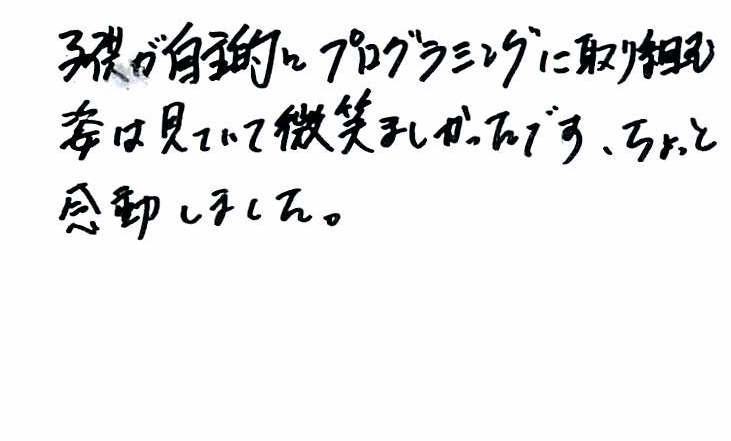 子供が自主的にプログラミングに取り組む
姿は見ていて微笑ましかったです、ちょっと
感動しました。